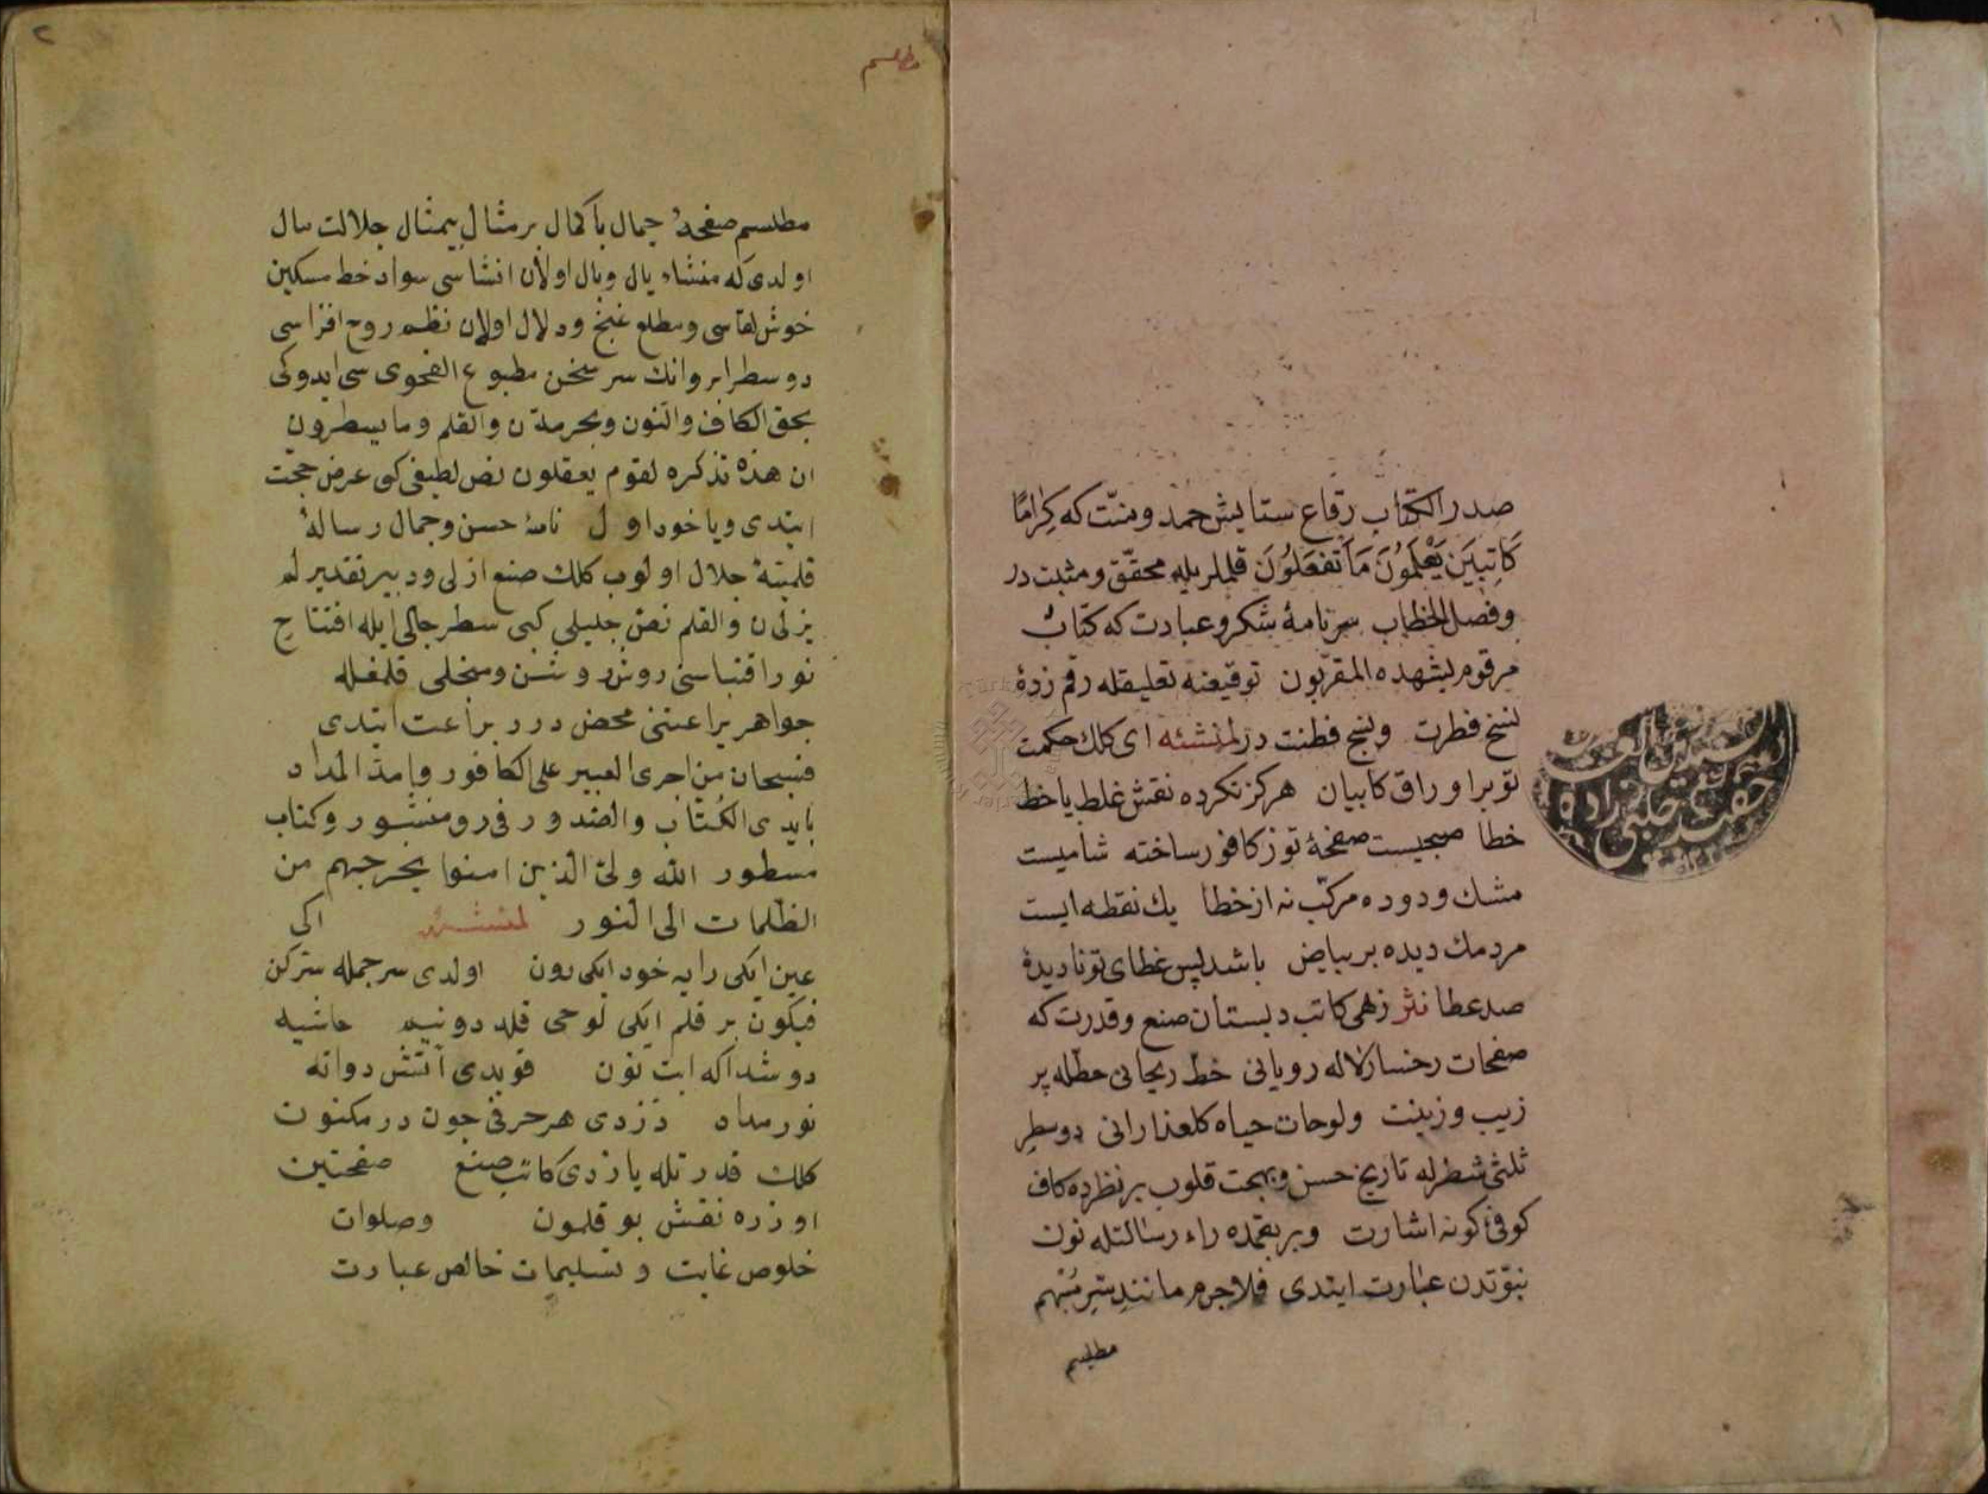 صدر الكتاب رقاع ستايش حمد و منّت كه كِرامًا
كَاتِبِينَ يَعْلَمُونَ مَا تَفعَلُونَ قلملريله محقّق و مثبت در
و فصل الخطاب سرنامهٔ شكر و عبادت كه كتابٌ
مرقوم يشهده المقرّبون توقيعنه تعليقله رقم زدهٔ
نسخ فطرت و نسج فطنت در لمنشئه اى كلك حكمت
تو بر اوراق كابيان هركز نكرده نقش غلط يا خط
خطا صبحيست صفحهٔ تو ز كافور ساخته شاميست
مشك و دوده مركّب نه از خطا يك نقطه ايست
مردمك ديده بر بياض باشد پس غطاى تو ناديدهٔ
صد عطا نثر زهى كاتب دبستان صنع و قدرت كه
صفحات رخسار لاله رويانى خطّ ريحانى خطّله پر
زيب و زينت و لوحات حياه كلعذارانى دو سطرِ
ثلثى شطرله تاريخ حسن و بهجت قلوب بر نظرده كاف
كوفئ كونه اشارت و بر بقعه‌ده راء رسالتله نون
نبوّتدن عبارت ايتدى فلاجرم مانند سّر مُبهم
مطلسم
٢
مطلسم
مطلسم صفحهٔ جمال با كمال بر مثال بيمثال جلالت مال
اولدى كه منشاء يال و بال اولان انشاسى سواد خط مسكين
خوش لقاسى و مطلع غنج و دلال اولان نظم روح افزاسى
دو سطر ابروانك سر سخن مطبوع الفحوى سى ايدوكى
بحق الكاف و النون و بحرمة ن والقلم وما يسطرون
ان هذه تذكره لقوم يعقلون نص لطيفى كبى عرض حجت
ايتدى و يا خود اول نامهٔ حسن و جمال رسالهٔ
قلميّهٔ جلال اولوب كلك صنع ازلى و دبير تقدير لم
يزلى ن والقلم نصّ جليلى كبى سطر جالى ايله افتتاح
نور اقتباسنى روش روشن و منجلى قلمغله
جواهر يراعتنى محض درر براعت ايتدى
فسبحان من اجرى العبير على الكافور وامدّ المداد
بايدى الكُتّاب والصّدور فى رقّ منشور وكتاب
مسطور الله ولىّ الّذين امنوا يخرجهم من
الظّلمات الى النّور لمنشئه اكى
عين ايكى را يه خود ايكى نون اولدى سر جمله ستركن
فيكون بر قلم ايكى لوحى قلدى دو نيم حاشيه
دوشدا كه ابت نون قويدى آتش دواته
نور مداد دزدى هر حرفى چون در مكنون
كلك قدرتله يازدى كاتب صنع صفحتين
اوزره نقش بو قلمون وصلوات
خلوص غايت و تسليمات خالص عبارت